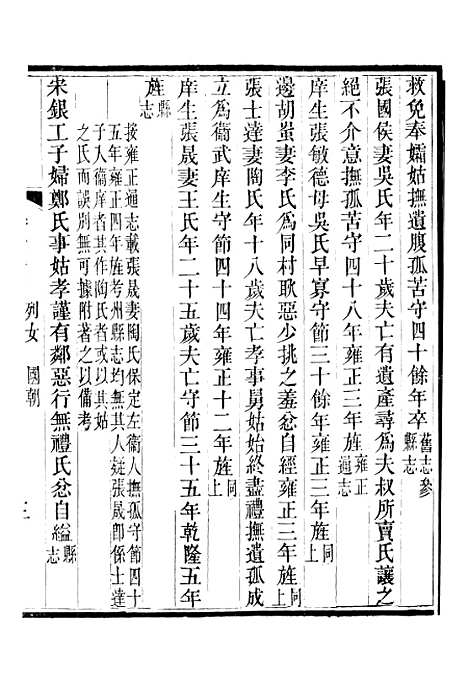 救免奉孀姑撫遺腹孤苦守四十餘年卒舊志參縣志
張國侯妻吳氏年二十歲夫亡有遺產尋爲夫叔所賣氏讓之
絕不介意撫孤苦守四十八年雍正三年旌通志
庠生張敏德母吳氏早寡守節三十餘年雍正三年旌同上
邊胡蚩妻李氏爲同村耿惡少挑之羞忿自經雍正三年旌同上
張士達妻陶氏年十八歲夫亡孝事舅姑始終盡禮撫遺孤成
立爲衞武庠生守節四十四年雍正十二年旌同上
庠生張晟妻王氏年二十五歲夫亡守節三十五年乾隆五年
旌縣志
按雍正通志載張晟妻陶氏保定左衞人撫孤守節四十
五年雍正四年旌考州縣志均無其人疑張晟卽係士達
子入衞庠者其作陶氏者或以其姑
之氏而誤別無可據附著之以備考
宋銀工子婦鄭氏事姑孝謹有鄰惡行無禮氏忿自縊縣志
列女 國朝